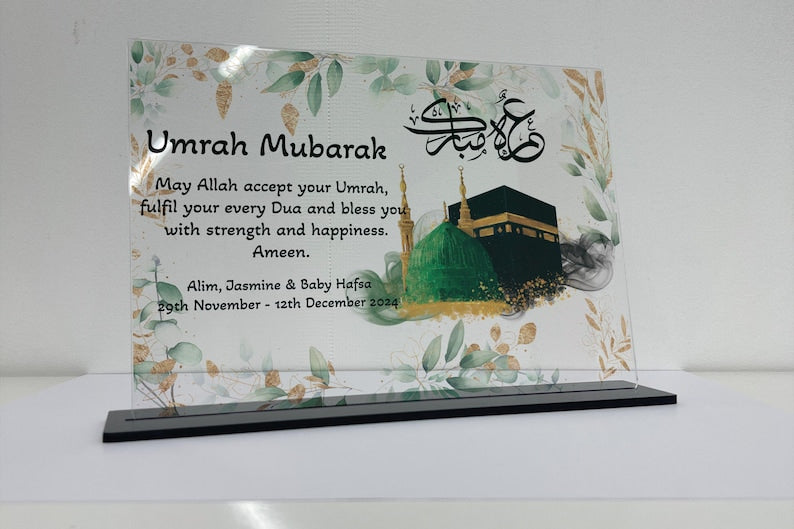 عمرة مباركة
Umrah Mubarak
May Allah accept your Umrah,
fulfil your every Dua and bless you
with strength and happiness.
Ameen.
Alim, Jasmine & Baby Hafsa
29th November - 12th December 2024